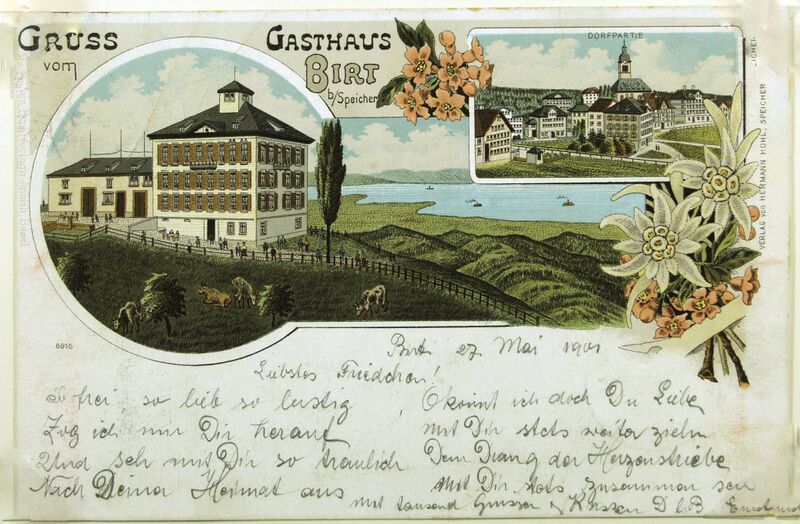 GRUSS
vom
GASTHAUS
BIRT
b/Speicher
DORFPARTIE
VERLAG von HERMANN HOHL, SPEICHER
6816
Birt 27 Mai 1901
Liebstes Friedchen!
So frei so lieb so lustig
Zog ich mir Dir herauf
Und seh mit Dir so traulich
Nach Deiner Heimat aus
O könnt ich doch Du Liebe
mit Dir stets weiter ziehn
Dem Drang der Herzenstriebe
Mit Dir stets zusammen sein
mit tausend Grüssen & Küssen D l B